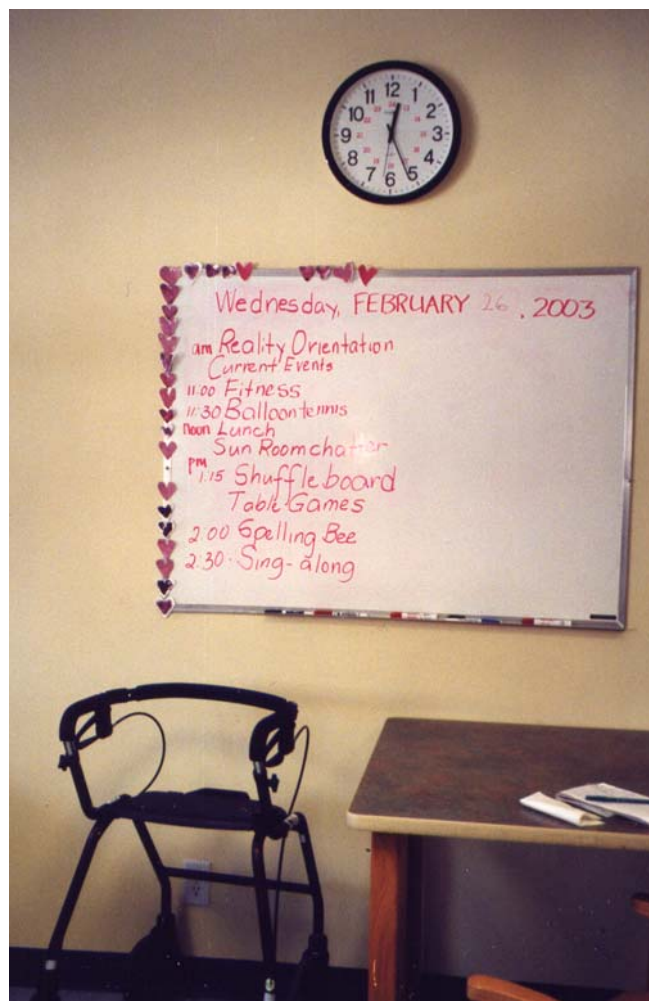 12
1
2
3
4
5
6
7
8
9
10
11
Wednesday, FEBRUARY 26, 2003
am Reality Orientation
Current Events
11:00 Fitness
11:30 Balloon tennis
noon Lunch
Sun Room chatter
pm
1:15 Shuffle board
Table Games
2:00 Spelling Bee
2:30 Sing-along